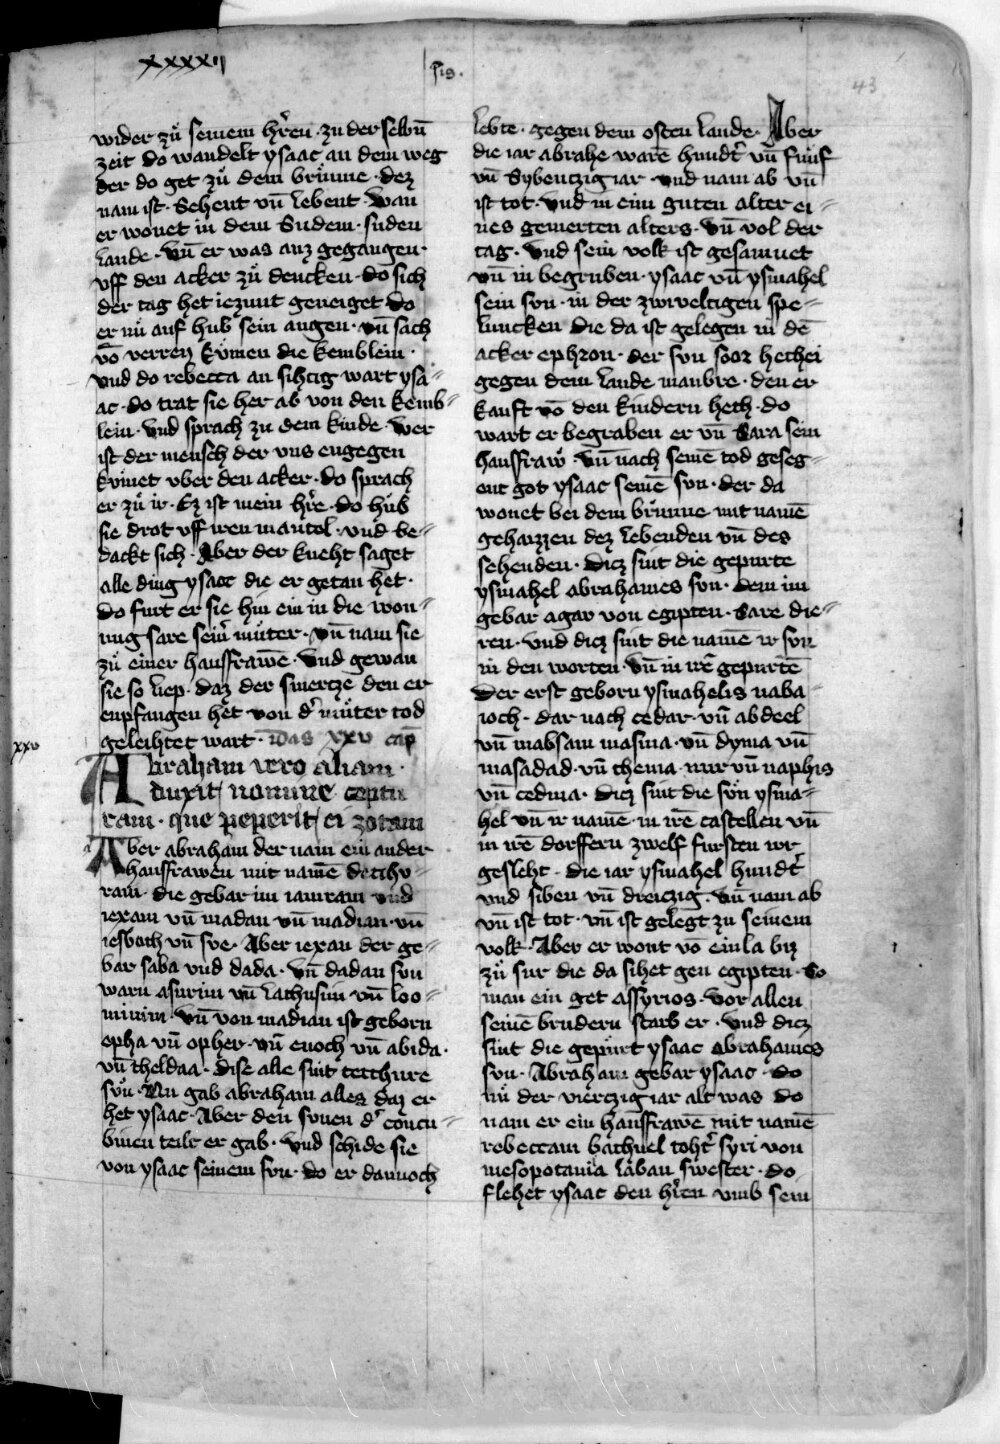 xxxxii
sis.
43
wider zů seinem hr̄en · zu der selbn̄
zeit do wandelt ysaac an dem weg
der do get zů dem brunne · dez
nam ist · Sehent vn̄ lebent · wan
er wonet in dem Sudem · suden
lande · vn̄ er was auz gegangen ·
vff den acker zů dencken · do sich
der tag het iezunt geneiget do
er nů auf hub sein augen · vn̄ sach
vō verren kůmen die kemblein ·
vnd do rebecca an sihtig wart ysa⸗
ac · do trat sie her ab von den kemb⸗
lein · vnd sprach zu dem kinde · wer
ist der mensch der vns engegen
kůmet vber den acker · do sprach
er zů ir · Ez ist mein hr̄e · do hůb
sie drot vff iren mantel · vnd be⸗
dackt sich · Aber der kneht saget
alle ding ysaac die er getan het ·
do furt er sie hin ein in die won⸗
nung sare sein̄ můter · vn̄ nam sie
zů einer hauffrawē · vnd gewan
sie so liep · daz der smertze den er
enpfangen het von d̄ můter tod
geleihtet wart · Das xxv cap̄
xxv
Abraham vero aliam ·
duxit nomine cethu
ram · que peperit ei zoram
a
Aber abraham der nam ein ander
hauffrawen mit namē decthv⸗
ram · die gebar im iamram vnd
iexam vn̄ madan vn̄ madian · vn̄
iesboch vn̄ sve · Aber iexan der ge⸗
bar saba vnd dada · vn̄ dadan svn
warn asurim vn̄ lathusim vn̄ loo⸗
minim · vn̄ von madian ist geborn
epha vn̄ opher · vn̄ enoch vn̄ abida ·
vn̄ theldaa · dise alle sint cetthure
svn · Nu gab abraham alles daz er
het ysaac · Aber den svnen d̄ concu⸗
binen teilr er gab · vnd schide sie
von ysaac seinem svn · do er dannoch
lebte · gegen dem osten lande · Aber
die iar abrahe warē hundt̄ vn̄ funf
vn̄ Sybentzig iar · vnd nam ab vn̄
ist tot · vnd in eim guten alter ei⸗
nes gemerten alters · vn̄ vol der
tag · vnd sein volk ist gesamnet
vn̄ in begruben · ysaac vn̄ ysmahel
sein svn · in der zwiveltigen spe⸗
luncken die da ist gelegen in dē
acker ephron · der svn soor hethei
gegen dem lande manbre · den er
kauft vō den kindern heth · do
wart er begraben er vn̄ Sara sein
hauffraw · vn̄ nach seinē tod geseg⸗
ent got ysaac seinē svn · der da
wonet bei dem brunne mit namē
gehaizzen dez lebenden vn̄ des
sehenden · Diez sint die gepurte
ysmahel abrahames svn · dem im
gebar agar von egipten · Sare die⸗
ren · vnd diez sint die namē ir svn
in den worten · vn̄ in irē gepurtē
Der erst geborn ysmahelis naba⸗
ioch · dar nach cedar · vn̄ abdeel
vn̄ mabsam masma · vn̄ dyma vn̄
masadad · vn̄ thema · mur vn̄ naphis
vn̄ cedma · diez sint die svn ysma⸗
hel vn̄ ir namē · in irē castellen vn̄
in irē dorffern zwelf fursten irr
gesleht · die iar ysmahel hundt̄
vnd siben vn̄ dreizig · vn̄ nam ab
vn̄ ist tot · vn̄ ist gelegt zu seinem
volk · Aber er wont vō euila biz
zů sur die da sihet gen egipten · So
man ein get assyrios · vor allen
seinē brudern starb er · vnd diez
sint die gepurt ysaac abrahames
svn · Abraham gebar ysaac · do
nů der vierczig iar alt was do
nam er ein hauffrawē mit namē
rebeccam bathuel toht̄ syri von
mesopotania laban swester · do
flehet ysaac den hr̄en vmb sein